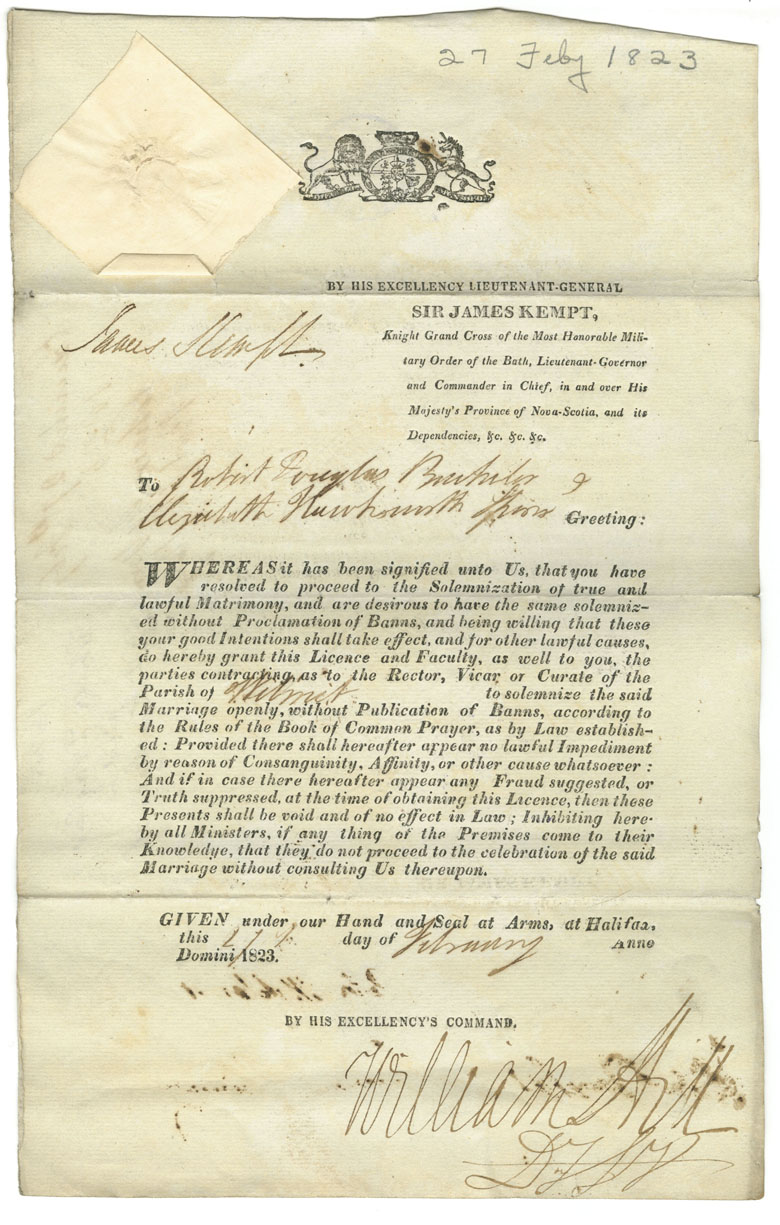 27 Feby 1823
BY HIS EXCELLENCY LIEUTENANT-GENERAL
SIR JAMES KEMPT,
Knight Grand Cross of the Most Honorable Mili-
tary Order of the Bath, Lieutenant-Governor
and Commander in Chief, in and over His
Majesty's Province of Nova-Scotia, and its
Dependencies, &c. &c. &c.
James Kempt
To Robert Douglas Bachelor &
Elizabeth Greeting:
WHEREAS it has been signified unto Us, that you have
resolved to proceed to the Solemnization of true and
lawful Matrimony, and are desirous to have the same solemniz-
ed without Proclamation of Banns, and being willing that these
your good Intentions shall take effect, and for other lawful causes,
do hereby grant this Licence and Faculty, as well to you, the
parties contracting, as to the Rector, Vicar, or Curate of the
Parish of Wilmot to solemnize the said
Marriage openly, without Publication of Banns, according to
the Rules of the Book of Common Prayer, as by Law establish-
ed: Provided there shall hereafter appear no lawful Impediment
by reason of Consanguinity, Affinity, or other cause whatsoever:
And if in case there hereafter appear any Fraud suggested, or
Truth suppressed, at the time of obtaining this Licence, then these
Presents shall be void and of no effect in Law; Inhibiting here-
by all Ministers, if any thing of the Premises come to their
Knowledge, that they do not proceed to the celebration of the said
Marriage without consulting Us thereupon.
GIVEN under our Hand and Seal at Arms, at Halifax,
this 27th day of February Anno
Domini, 1823.
BY HIS EXCELLENCY'S COMMAND.
William Hill